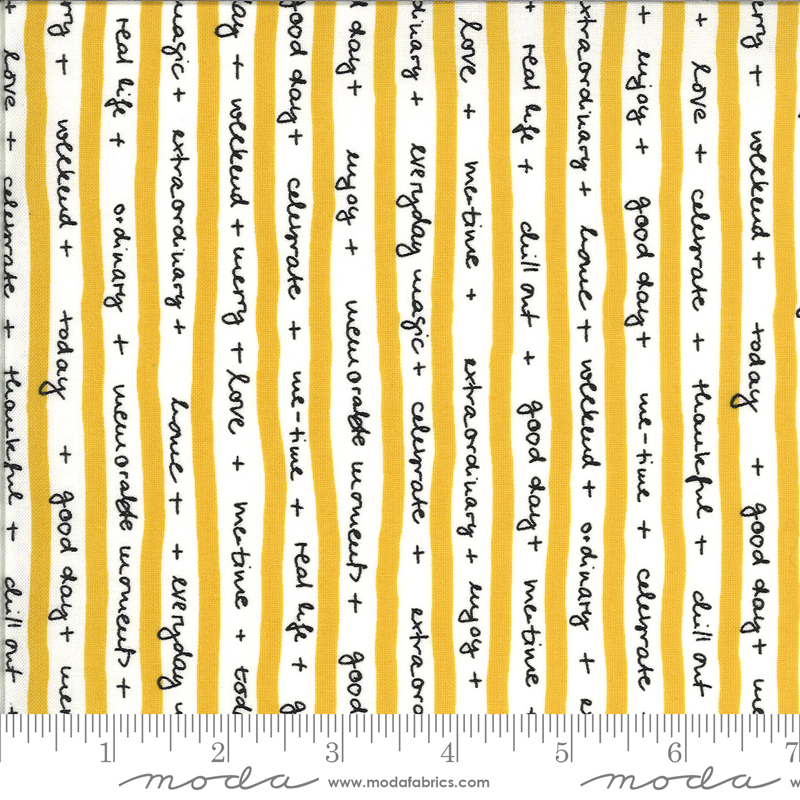 + love + celebrate + thankful + chill out +
merry + weekend + today + good day + mer
real life + ordinary + memorable moments +
magic + extraordinary + home + + everyday
day + weekend + merry + love + me-time + tod
good day + celebrate + me-time + real life + g
day + enjoy + memorable moments + good
dinary + everyday magic + celebrate + extraord
love + me-time + extraordinary + enjoy +
+ real life + chill out + good day + me-time +
xtraordinary + home + weekend + ordinary + e
+ enjoy + good day + me-time + celebrate
+ love + celebrate + thankful + chill out
erry + weekend + today + good day + me
1 2 3 4 5 6 7
moda www.modafabrics.com moda w